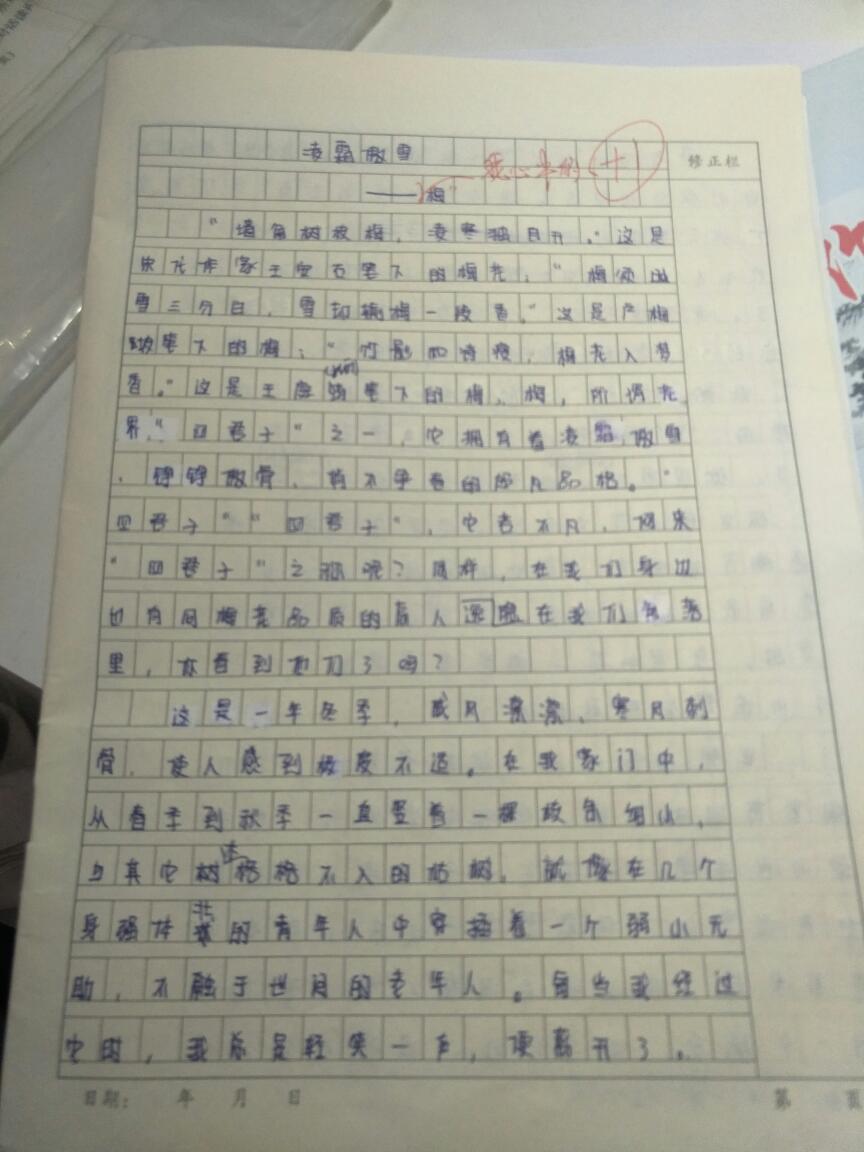 凌霜傲雪
修正栏
——梅
我心中的
"墙角树枝梅，凌寒独自开。"这是
宋代作家王安石笔下的梅花；"梅须逊
雪三分白，雪却输梅一段香。"这是卢梅
坡笔下的梅；"竹影和诗瘦，梅花入梦
香。"这是王庭筠笔下的梅，梅，所谓花
界"四君子"之一，它拥有着凌霜傲雪
，铮铮傲骨，有不争春的非凡品格。"
四君子""四君子"，它若不凡，何来
"四君子"之称呢？同样，在我们身边
也有同梅花品质的后人 在我们 落
里，你看到他们了吗？
这是一年冬季，感月凛凛，寒月刺
骨，使人感到极度不适。在我家门中，
从春季到秋季一直竖着一棵枝条细小，
与其它树木格格不入的枯树，就像在几个
身强体壮的青年人中穿插着一个弱小无
助，不融于世间的老年人。每当我经过
它时，我总是轻笑一声，便离开了。
日期： 年 月 日
第 页